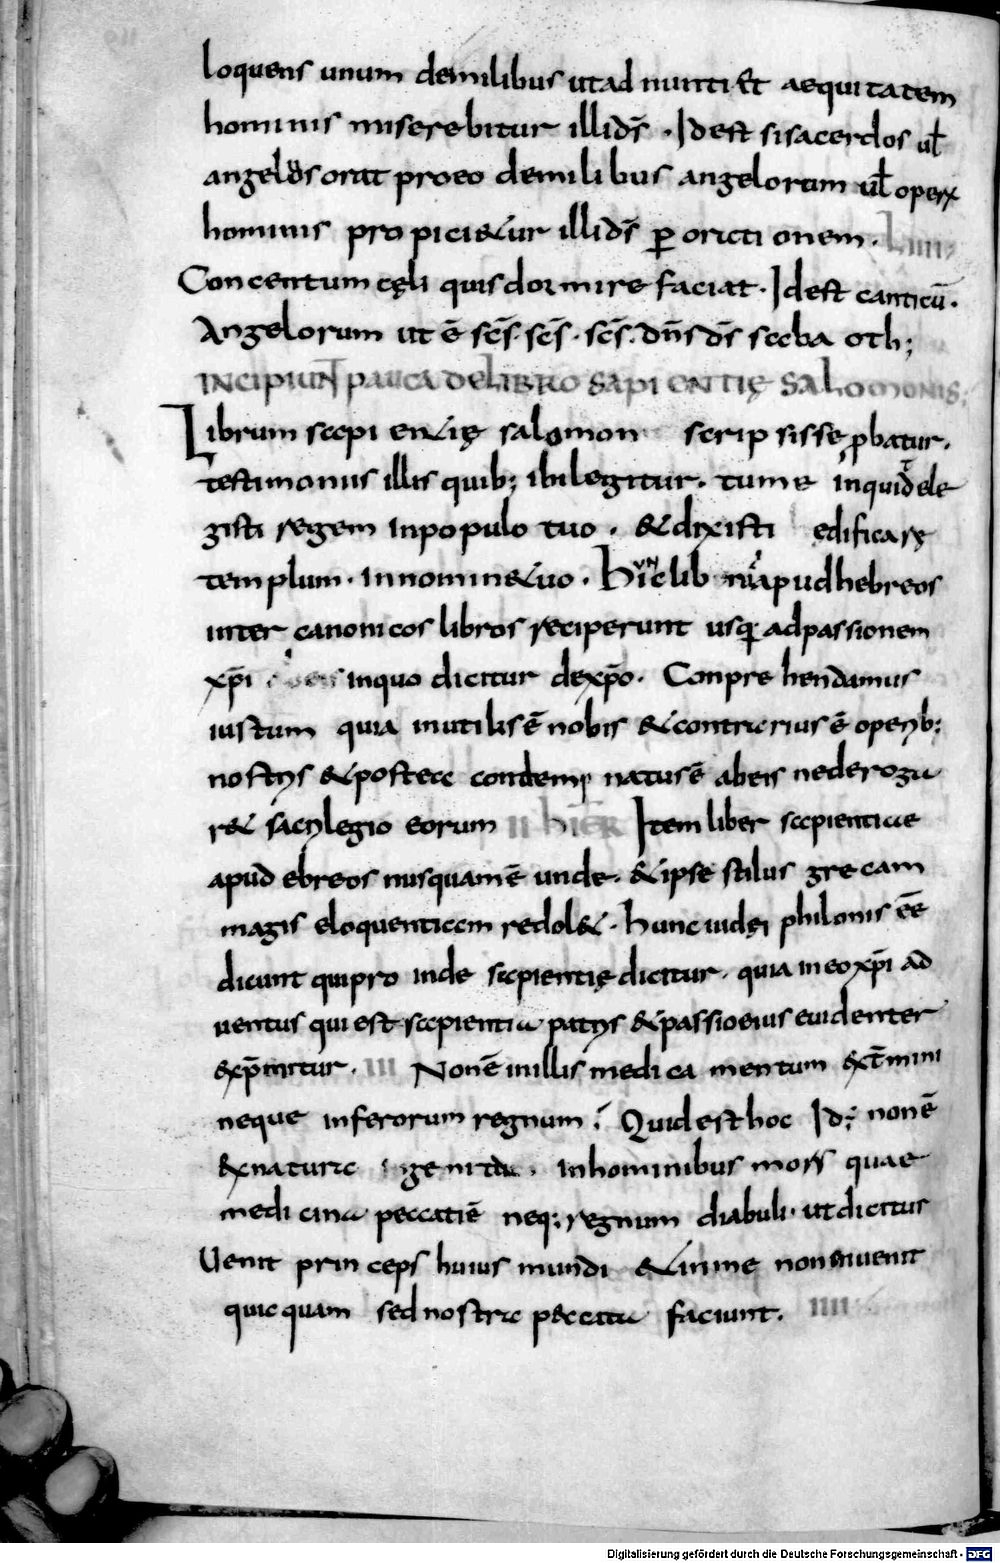 loquens unum demilibus utad nunti& aequitatem
hominis miserebitur illi ds̄ . Idest sisacerdos ul̄
angelus orat proeo demilibus angelorum ul̄ opera
hominis propici&ur illi ds̄ ꝑ orationem. LIIII
Concentum cęli quis dormire faciat. Idest canticū.
Angelorum ut ē sc̄s. sc̄s. sc̄s. dn̄s ds̄ sabaoth;
INCIPIUNT PAUCA DELIBRO SAPIENTIĘ SALOMONIS;
Librum sapienti&ię salomon scripsisse ꝓbatur.
testimoniis illis quib; ibilegitur. tume inquid ele
gisti regem inpopulo tuo. & dixisti ędificarę
templum. innomin&uo. Hic lib nr̄ apud hebreos
inter canonicos libros reciperunt usq; adpassionem
xp̄i inquo dicitur dexp̄o. Conprehendamus
iustum quia inutilis ē nobis & contrarius ē operib;
nostris & postea condempnatus ē abeis nederoga
r& sacrilegio eorum II HIER̄ Item liber sapientiae
apud ebreos nusquam ē unde. & ipse stilus grecam
magis eloquentiam redol&. hunc iudęi philonis eē
dicunt qui pro inde sapientię dicitur. quia ineo xp̄i ad
uentus qui est sapientia patris & passio eius euidenter
exp̄mitur. III Non ē inillis medicamentum ext̄mini
neque inferorum regnum; Quid est hoc Id; non ē
exnatura ingenita. inhominibus mors quae
medicina peccati ē neq; regnum diabuli. ut dicitus
Uenit princeps huius mundi & inme noninuenit
quicquam sed nostra peccata faciunt. IIII
Digitalisierung gefördert durch die Deutsche Forschungsgemeinschaft - DFG